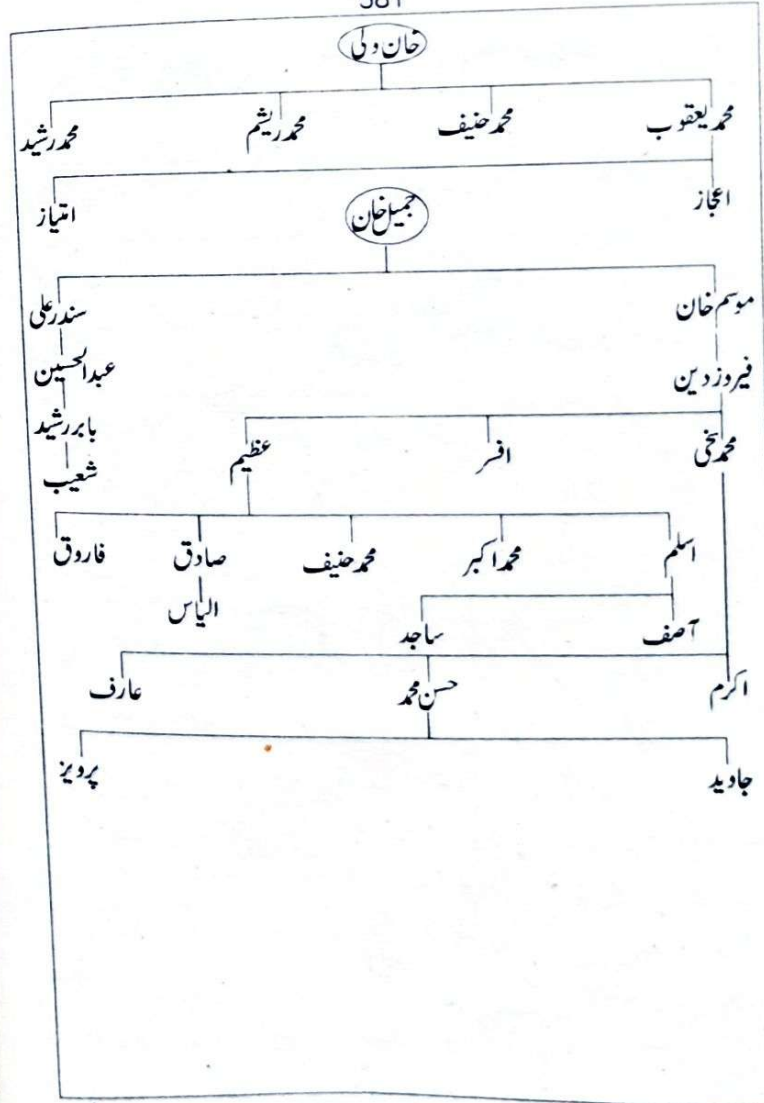 581
خان ولی
محمد یعقوب محمد حنیف محمد ریشم محمد رشید
اعجاز امتیاز
جمیل خان
موسم خان سندر علی
فیروز دین عبدالحسین
بابر رشید
محمد سخی افسر عظیم شعیب
اسلم محمد اکبر محمد حنیف صادق فاروق
آصف ساجد الیاس
اکرم حسن محمد عارف
جاوید پرویز